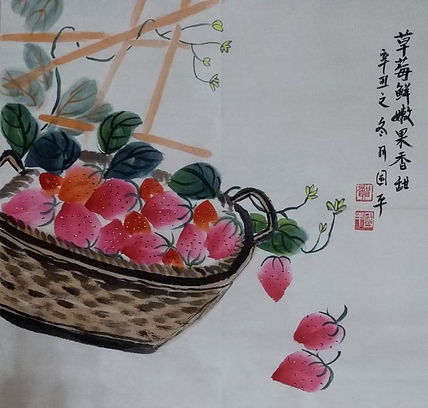 草莓鲜嫩果香甜
辛丑之冬月国平